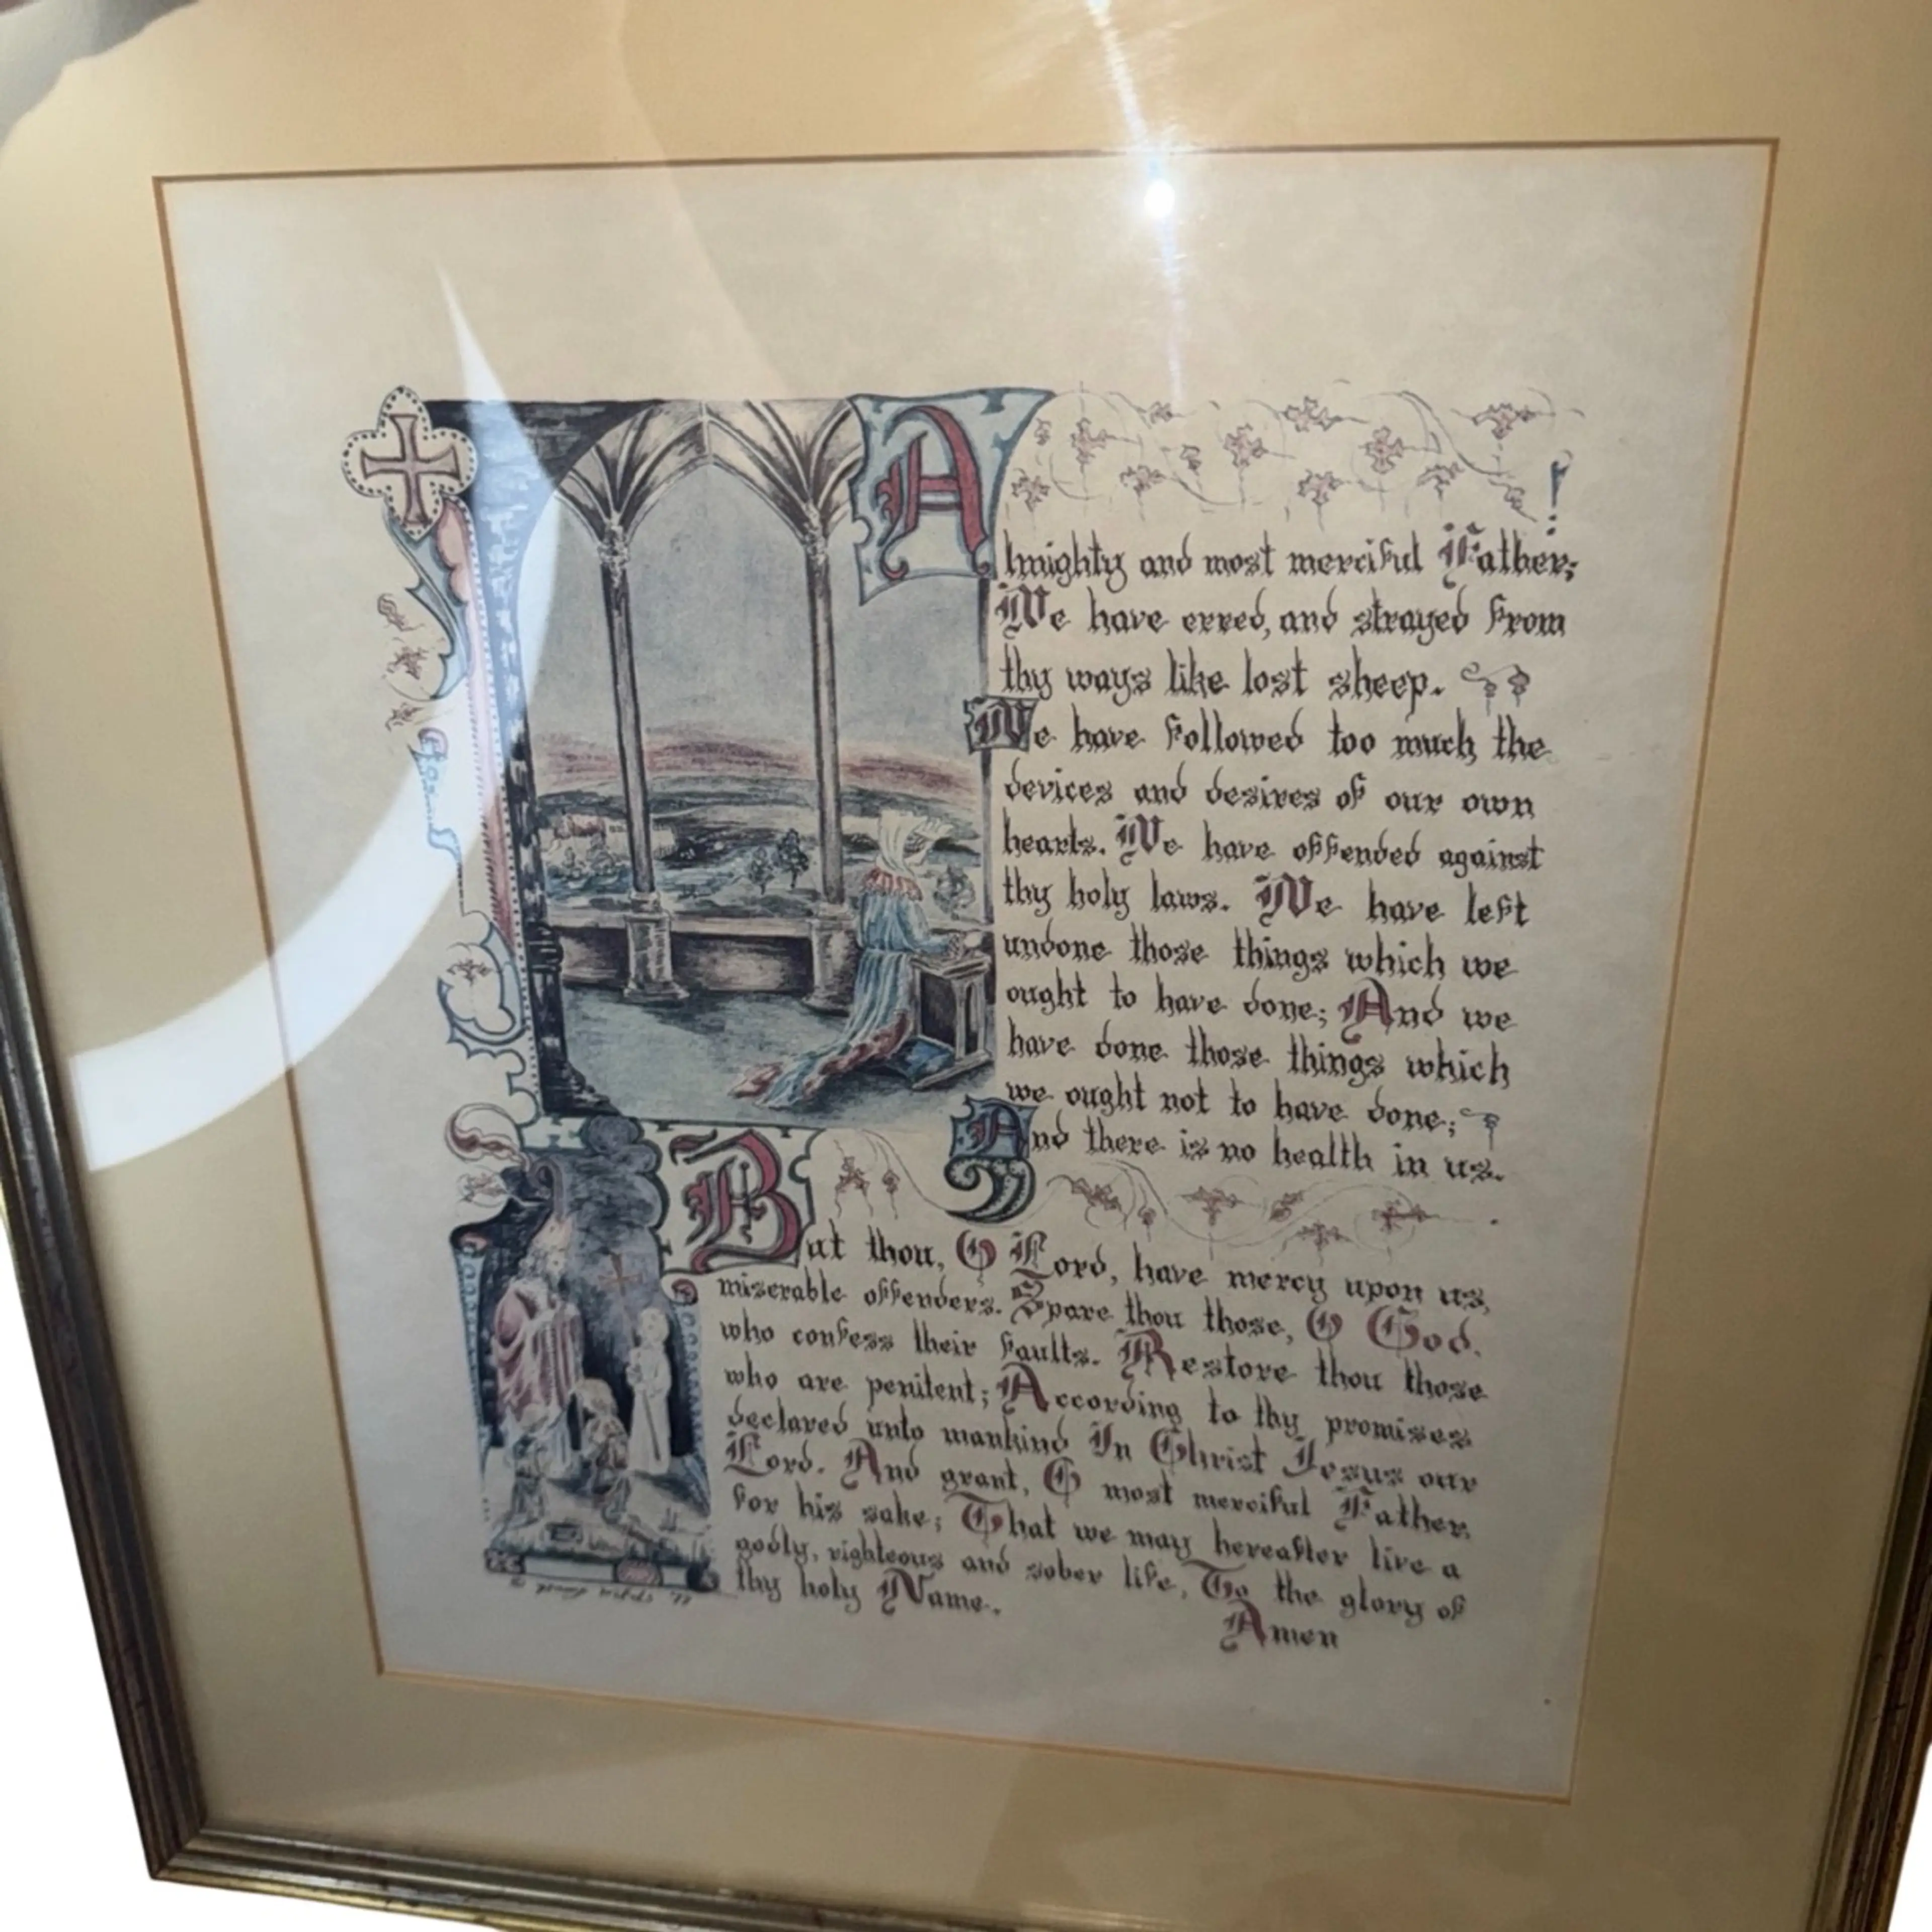 Almighty and most merciful Father;
We have erred, and strayed from
thy ways like lost sheep.
We have followed too much the
devices and desires of our own
hearts. We have offended against
thy holy laws. We have left
undone those things which we
ought to have done; And we
have done those things which
we ought not to have done;
And there is no health in us.
But thou, O Lord, have mercy upon us,
miserable offenders. Spare thou those, O God.
who confess their faults. Restore thou those
who are penitent; According to thy promises
declared unto mankind In Christ Jesus our
Lord. And grant, O most merciful Father,
for his sake; That we may hereafter live a
godly, righteous and sober life, To the glory of
thy holy Name.
Amen